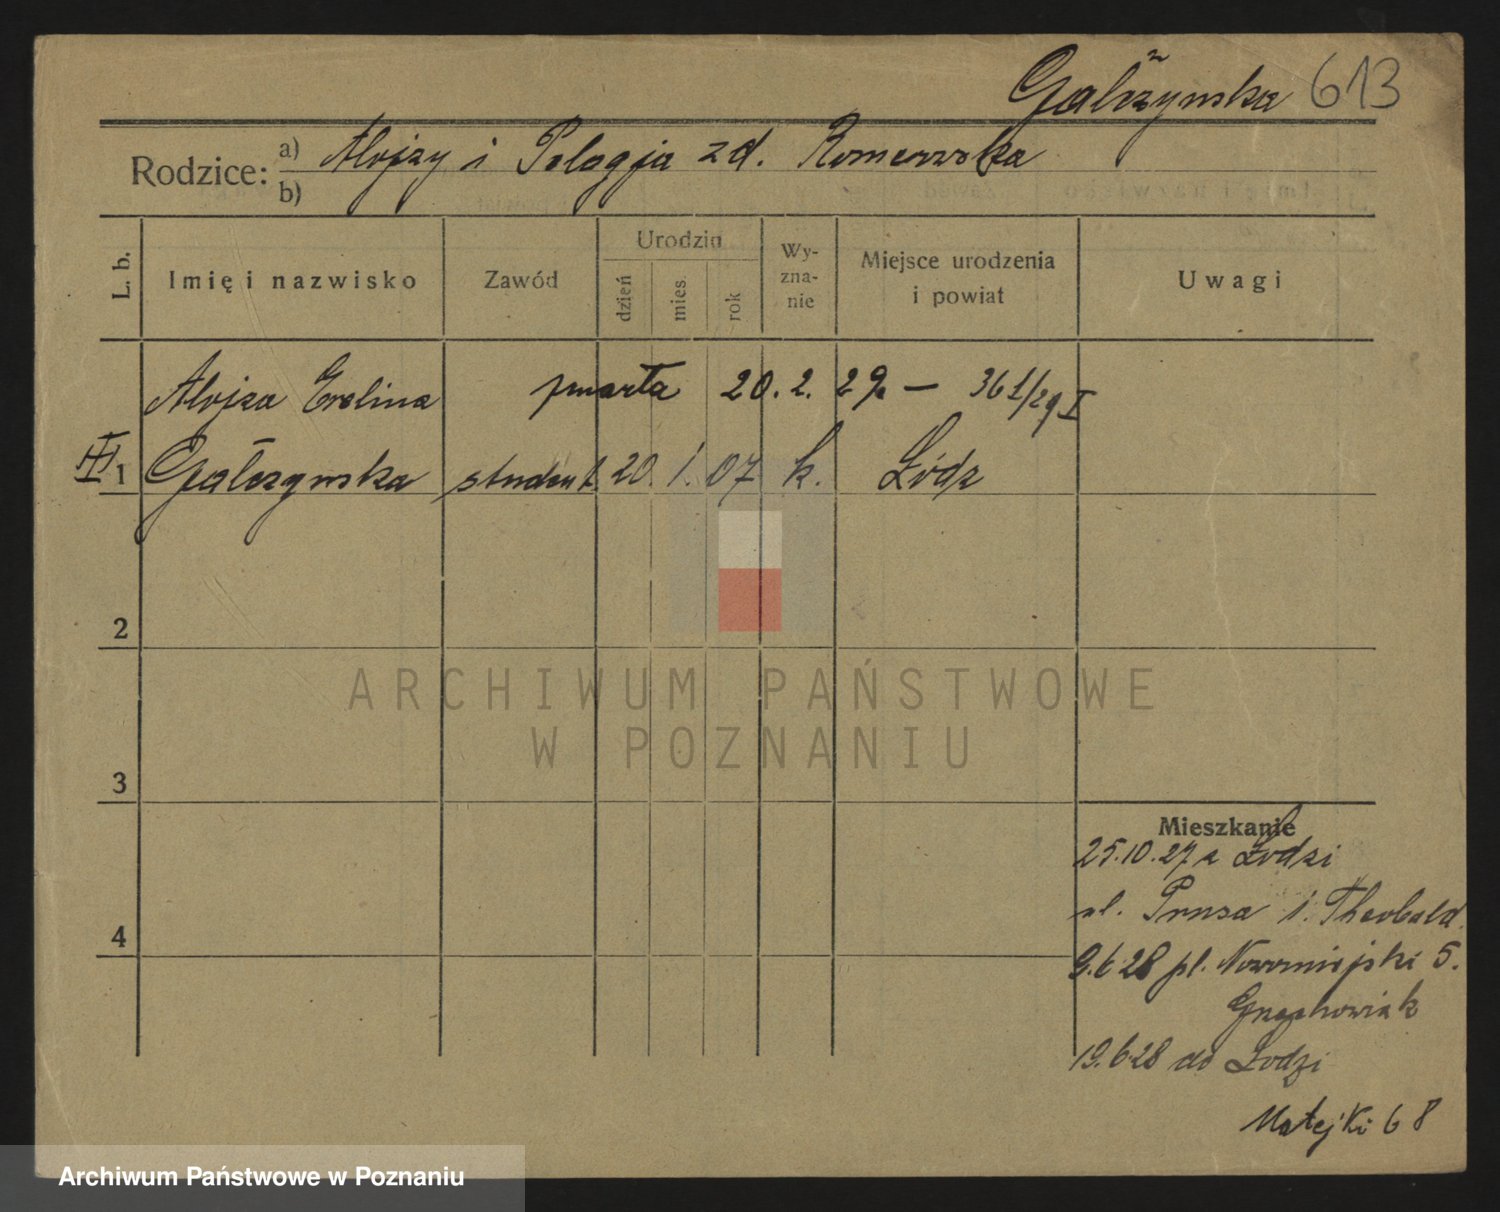 Gałczyńska 613
Rodzice: a) Alojzy i Pelagja z d. Romerowska
b)
L. b. Imię i nazwisko Zawód Urodzin dzień mies. rok Wy-zna-nie Miejsce urodzenia i powiat Uwagi
Alojza Ewelina zmarła 20. 2. 29 — 361/29 I
III 1 Gałczyńska student. 20. 1. 07 k. Łódź
2
3
4
Mieszkanie
25.10.27 z Łodzi
ul. Prusa 1. Theobald.
9.6.28 pl. Nowomiejski 5.
Grzechowiak
19.6.28 do Łodzi
Matejki 68
ARCHIWUM PAŃSTWOWE
W POZNANIU
Archiwum Państwowe w Poznaniu